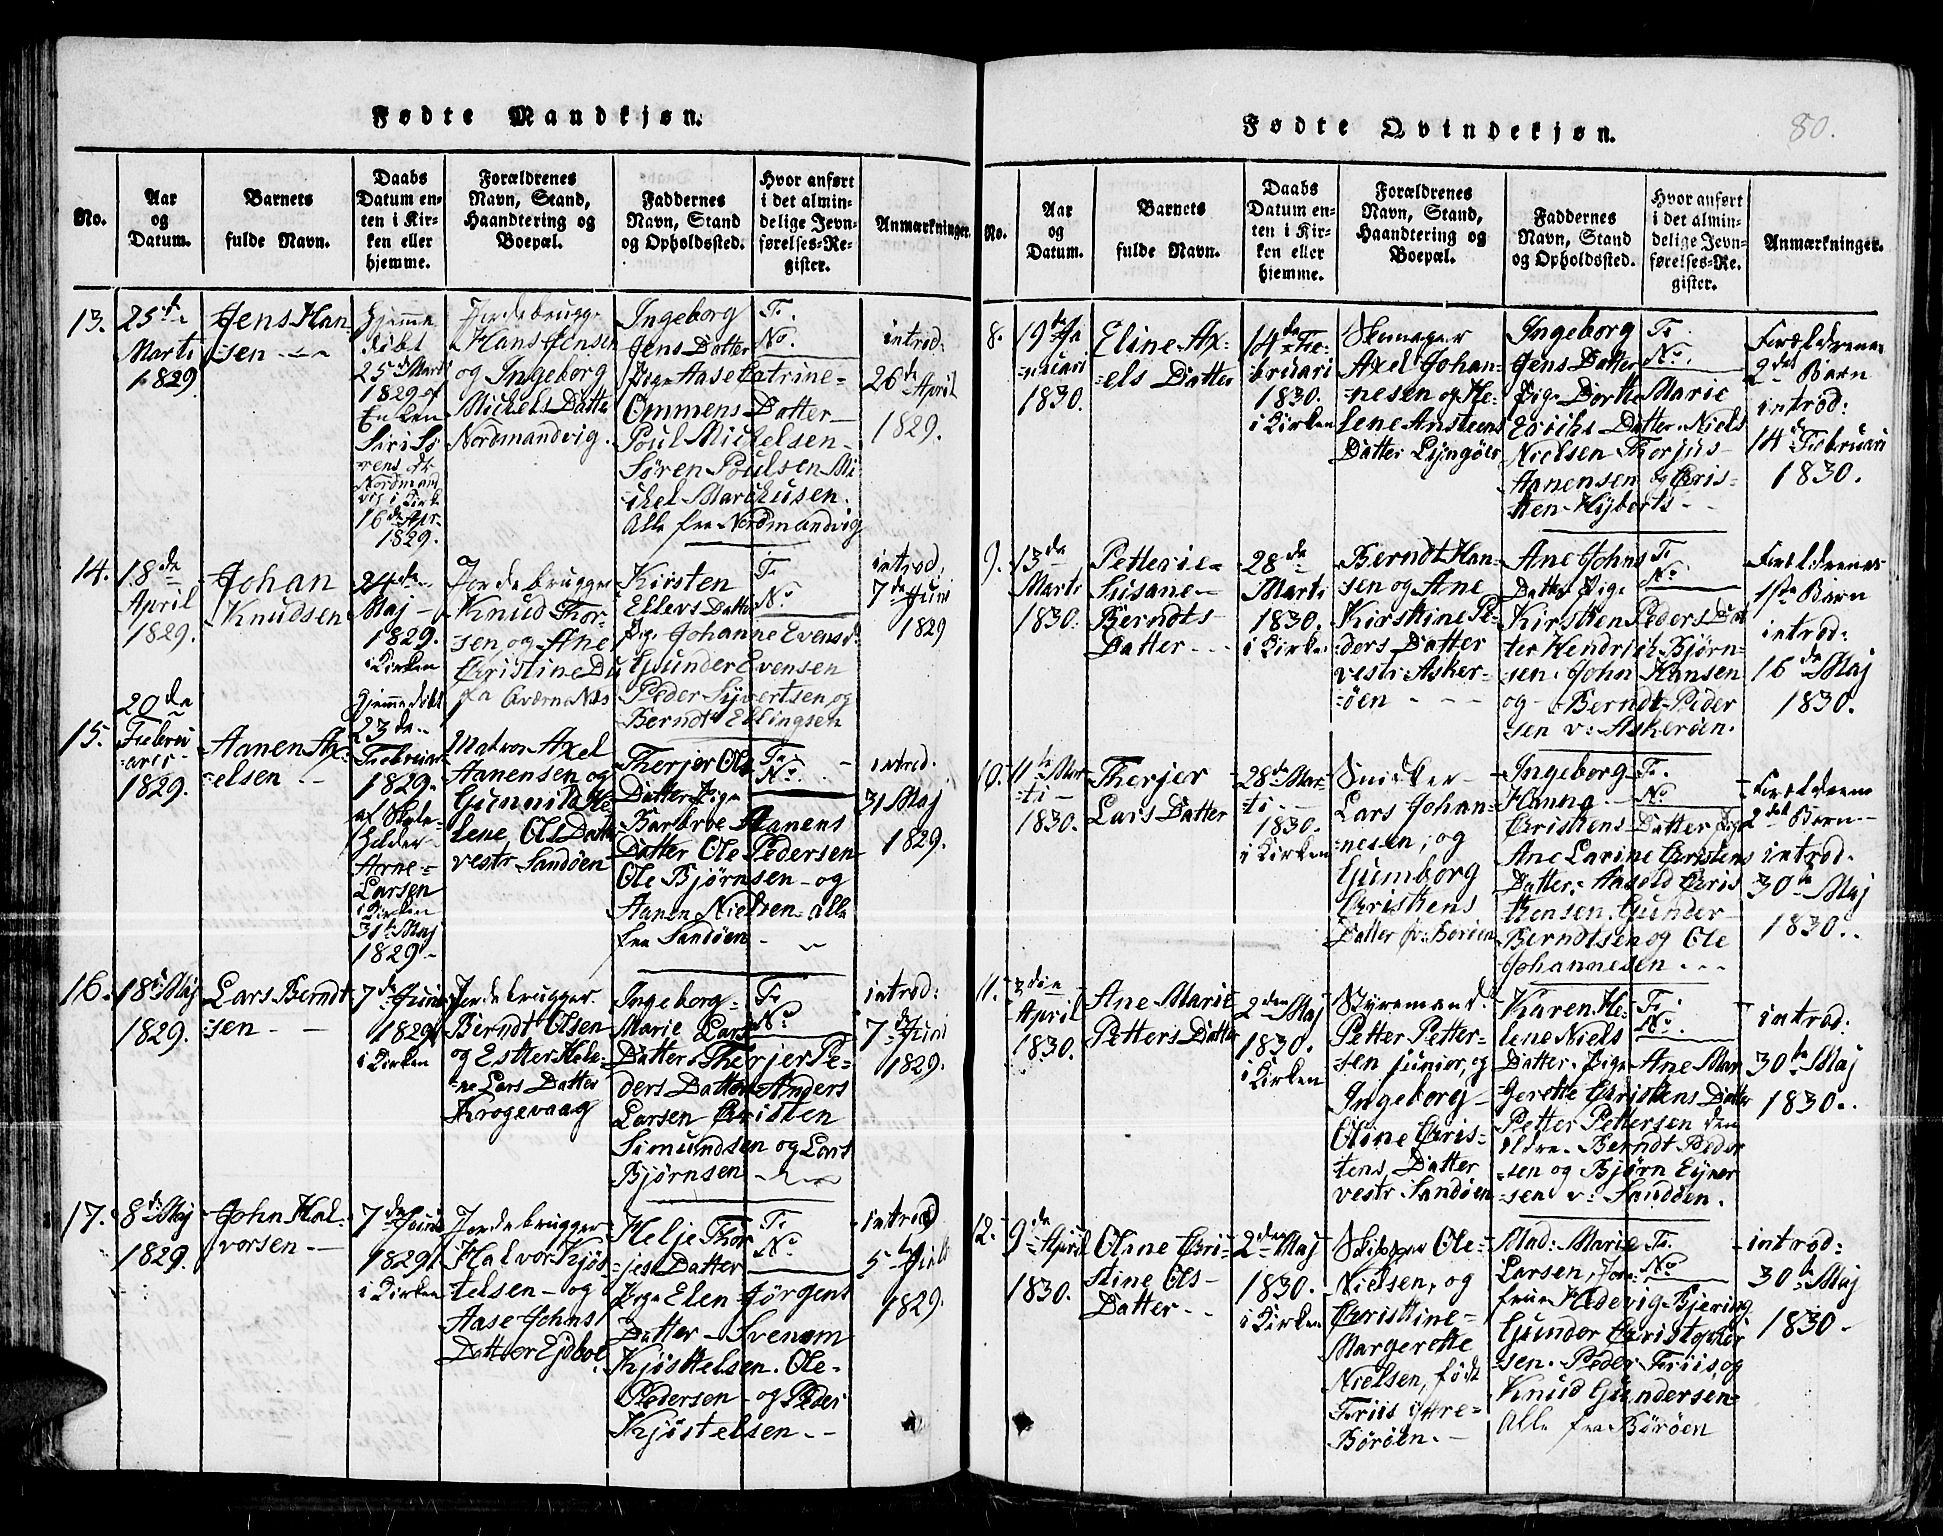 Fødte Mandkjøn.
No.
Aar
og
Datum.
Barnets
fulde Navn.
Daabs
Datum en-
ten i Kir-
ken eller
hjemme.
Forældrenes
Navn, Stand,
Haandtering og
Boepæl.
Faddernes
Navn, Stand
og Opholdssted.
Hvor anført
i det almin-
delige Jevn-
førelses-Re-
gister.
Anmærkninger.
13.
25de
Marti
1829
Jens Han
-sen
Hjemme
døbt
25de Marti
1829 af
Enken
Siri Sø
rens dr
Nordmand
vig i Kirk
16de Apr.
1829.
Jordebrugge
Hans Jensen
og Ingeborg
Michels Datte
Nordmandvig.
Ingeborg
Jens Datter
Pige Aase Catrine
Ommens Datter
Poul Michelsen
Søren Poulsen Mi
chel Marchusen.
Alle fra Nordmandvig
F:
No.
introd:
26de April
1829.
14.
18de
April
1829.
Johan
Knudsen
24de
Maj
1829.
i Kirken
Jordebrugger
Knud Thor-
sen, og Ane
Christine Du
fa Qværne Næs
Kirsten
Ellevs Datter
Pige Johanne Evens d.
Gunder Evensen
Peder Syvertsen og
Berndt Ellingsen
F:
No.
introd:
7de Juni
1829
15.
20de
Februi
-arii
1829.
Aanen Ax-
-elsen
Hjemmedøbt
23de
Februar
1829.
af Skole-
holder
Arne
Larsen
i Kirken
31te Maj
1829.
Matros Axel
Aanensen og
Gunnild He
lene Ols Datter
vestr Sandøen
Therjer Ols
Datter Pige
Barbroe Aanens
Datter Ole Pedersen
Ole Bjørnsen og
Aanen Nielsen alle
fra Sandøen
F:
No.
introd.
31 Maj
1829.
16.
18de Maj
1829.
Lars Berndt
-sen
7de Juni
1829
i Kirken
Jordebrugger
Berndt Olsen
og Esther Hele-
-ne Lars Datter
Krogevaag
Ingeborg
Marie Lars
Datter Therjer Pe-
ders Datter Anders
Larsen Cristen
Simundsen og Lars
Bjørnsen
F:
No.
introd:
7de Juni
1829.
17.
8de Maj
1829.
John Hal-
vorsen
7de Juni
1829
i Kirken
Jordebrugger
Halvor Kjøs-
telsen og
Aase Johns
Datter Ejdboe
Helje Thor
jes Datter
Pige Elen Jørgens
Datter Svenom
Kjøstelsen. Ole
Pedersen og Peder
Kjøstelsen
F:
No.
introd
5te Juli
1829.
Fødte Qvindekjøn.
80.
No.
Aar
og
Datum.
Barnets
fulde Navn.
Daabs
Datum en-
ten i Kir-
ken eller
hjemme.
Forældrenes
Navn, Stand,
Haandtering og
Boepæl.
Faddernes
Navn, Stand
og Opholdssted.
Hvor anført
i det almin-
delige Jevn-
førelses-Re-
gister.
Anmærkninger.
8.
19de Ja
-nuari
1830.
Eline Ax-
-els Datter
14de Fe-
bruari
1830.
i Kirken
Axel Johan-
nesen og He-
lene Ansteens
Datter Lyngøer
Ingeborg
Jens Datter
Pige Dorthe Marie
Eriks Datter Niels
Nielsen Thorjus
Aanensen og Cris-
ten Hyberts
F:
No.
Forældrenes
2det Barn
introd:
14de Februari
1830.
9.
13de
Marti
1830.
Petterie
Susane
Berndts
Datter
28de
Marti
1830.
i Kirken
Berndt Han-
sen og Ane
Kirstine Pe-
ders Datter
vestr Asker-
øen
Ane Johns
Datter Pige
Kirsten Peders Dat
ter Hendrich Bjørn-
sen. John Hansen
og Berndt Peder
sen v: Askerøen.
F:
No.
Forældrenes
1ste Barn
introd:
16de Maj
1830.
10.
11te Mar
-ti
1830.
Therjer
Lars Datter
28de Mar-
ti.
1830.
i Kirken
Snidker
Lars Johan-
nesen, og
Gumborg
Cristens
Datter v: Børøen
Ingeborg
Hanna
Cristens Datter Pige
Ane Larine Cristens
Datter. Aasold Cris
tensen. Gunder
Berndtsen og Ole
Johannesen
F:
No
Forældrene
2det Barn
introd.
30te Maj
1830.
11.
3die
April
1830.
Ane Marie
Petters Datter
2den Maj
1830.
i Kirken
Styremand
Petter Petter-
sen junior, og
Ingeborg
Oline Cris-
tens Datter
vestr Sandøen
Karen He-
lene Niels
Datter. Pige Ane Mar
gerette Cristens Datter
Petter Pettersen den
eldre. Berndt Peder
-sen og Bjørn Ejner
-sen v: Sandøen.
F:
No.
introd:
30te Maj
1830.
12.
9de April
1830.
Oline Cri-
stine Ols
Datter
2den Maj
1830.
i Kirken
Skipper Ole
Nielsen, og
Cristine
Margerette
Nielsen, født
Friis ytre
Børøen.
Mad: Marie
Larsen, Jom-
frue Hedevig Bjering
Gunder Cristopher
-sen. Peder Friis, og
Knud Gundersen
Alle fra Børøen
F:
No
introd:
30te Maj
1830